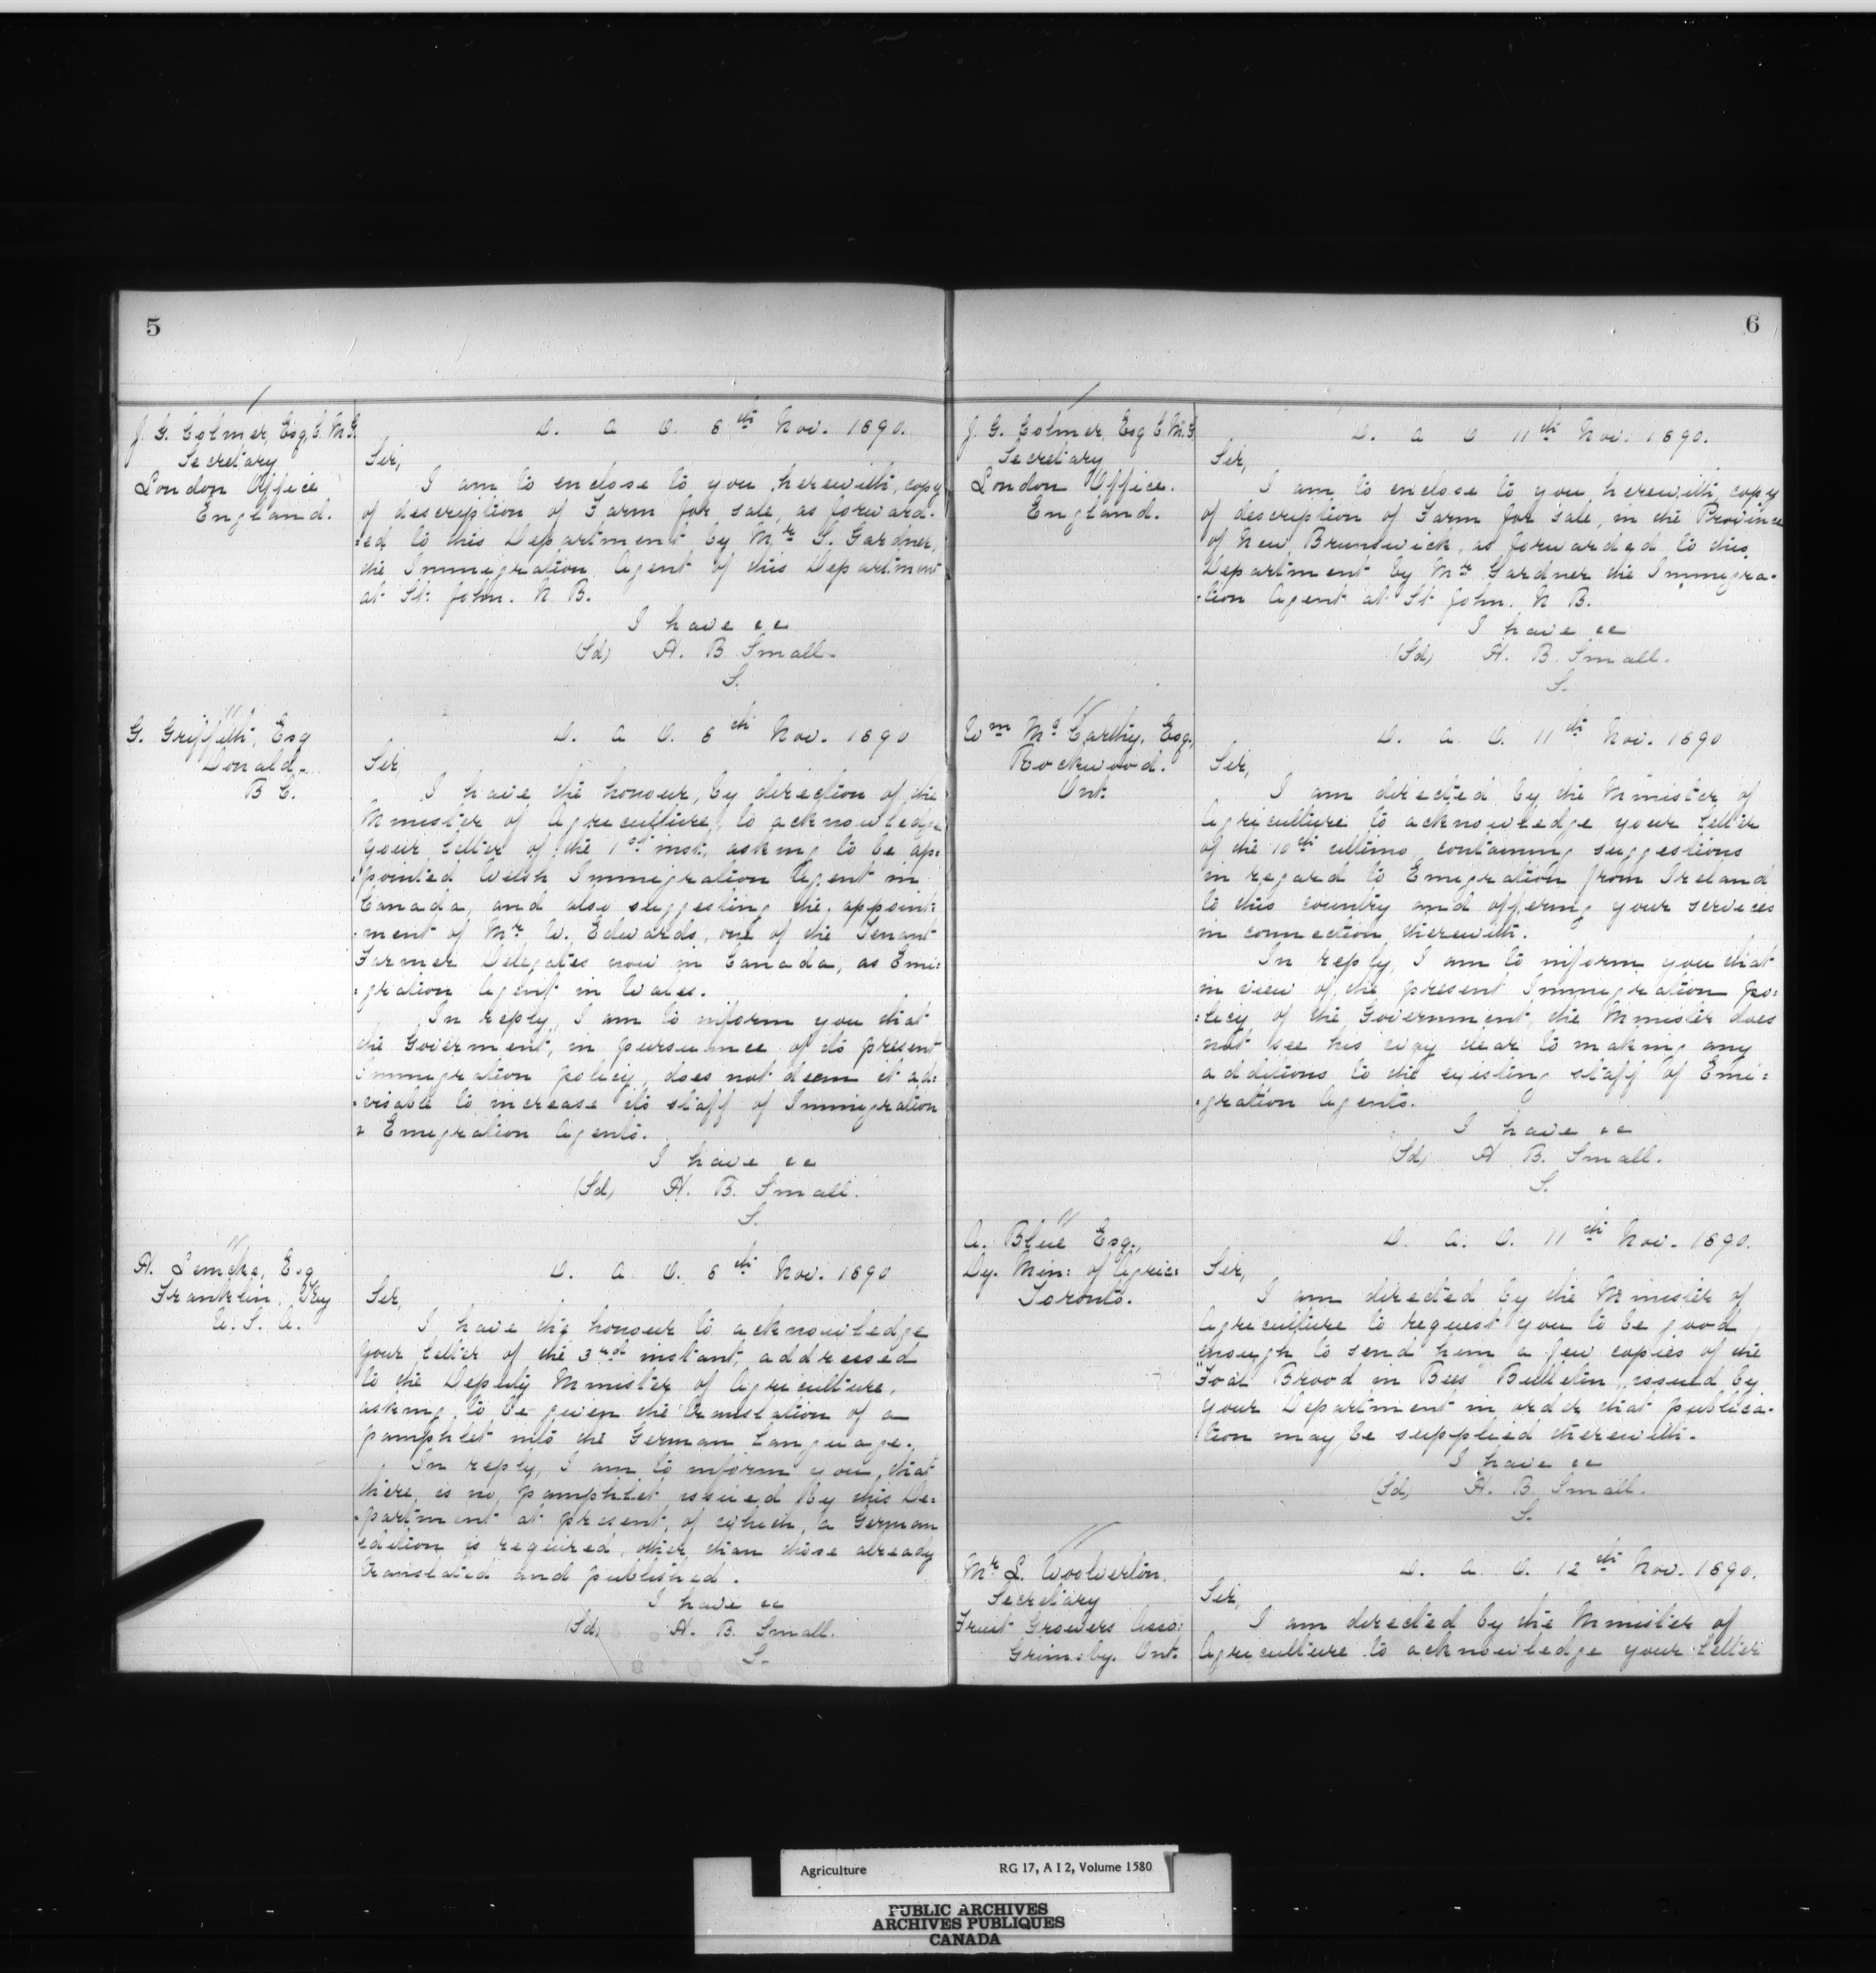 5
J. G. Colmer, Esq, C. M. G.
Secretary
London Office
England.
D. A. O. 6th Nov. 1890.
Sir,
I am to enclose to you, herewith, copy
of description of Farm for sale, as forward-
:ed, to this Department by Mr S. Gardner,
the Immigration Agent of this Department
at St. John. N. B.
I have &c
(Sd) H. B Small.
S.
"
G. Griffith, Esq
Donald.
B C.
D. A O. 6th Nov. 1890
Sir,
I have the honour, by direction of the
Minister of Agriculture, to acknowledge
your letter of the 1st inst, asking to be ap:
:pointed Welsh Immigration Agent in
Canada, and also suggesting the appoint:
:ment of Mr W. Edwards, one of the Tenant
Farmer Delegates now in Canada, as Emi:
:gration Agent in Wales.
In reply, I am to inform you that
the Goverment, in pursuance of its present
Immigration policy, does not deem it ad:
:visable to increase its staff of Immigration
& Emigration Agents.
I have &c
(Sd) H. B. Small.
S.
"
H. Lemcke, Esq
Franklin, Ky
U. S. A.
D. A O. 6th Nov. 1890
Sir,
I have the honour to acknowledge
your letter of the 3rd instant, addressed
to the Deputy Minister of Agriculture,
asking to be given the translation of a
pamphlet into the German Language.
In reply, I am to inform you, that
there is no pamphlet issued by this De:
:partment at present, of which, a German
edition is required, other than those already
translated and published.
I have &c
(Sd) H. B. Small.
S.
6
J. G. Colmer, Esq C. M. G
Secretary
London Office.
England.
D. A O 11th Nov. 1890.
Sir,
I am to enclose to you, herewith, copy
of description of Farm for sale, in the Province
of New Brunswick, as forwarded to this
Department by Mr Gardner the Immigra-
:tion Agent at St John. N B.
I have &c
(Sd) H. B. Small.
S.
"
Wm McCarthy, Esq.,
Rockwood.
Ont:
D. A. O. 11th Nov. 1890
Sir,
I am directed by the Minister of
Agriculture to acknowledge your letter
of the 10th ultimo, containing suggestions
in regard to Emigration from Ireland
to this country and offering your services
in connection therewith.
In reply, I am to inform you that
in view of the present Immigration po:
:licy of the Government, the Minister does
not see his way clear to making any
additions to the existing staff of Emi:
:gration Agents.
I have &c
(Sd) H B. Small.
S.
"
A. Blue Esq.,
Dy. Min: of Agric:
Toronto.
D. A. O. 11th Nov. 1890.
Sir,
I am directed by the Minister of
Agriculture to request you to be good
enough to send him a few copies of the
"Foal Brood in Bees" Bulletin, issued by
your Department in order that publica-
:tion may be supplied therewith.
I have &c
(Sd) H. B Small.
S.
"
Mr L. Woolverton,
Secretary
Fruit Growers Asso:
Grimsby. Ont.
D. A. O. 12th Nov. 1890.
Sir,
I am directed by the Minister of
Agriculture to acknowledge your letter
Agriculture RG 17, A I 2, Volume 1580
PUBLIC ARCHIVES
ARCHIVES PUBLIQUES
CANADA